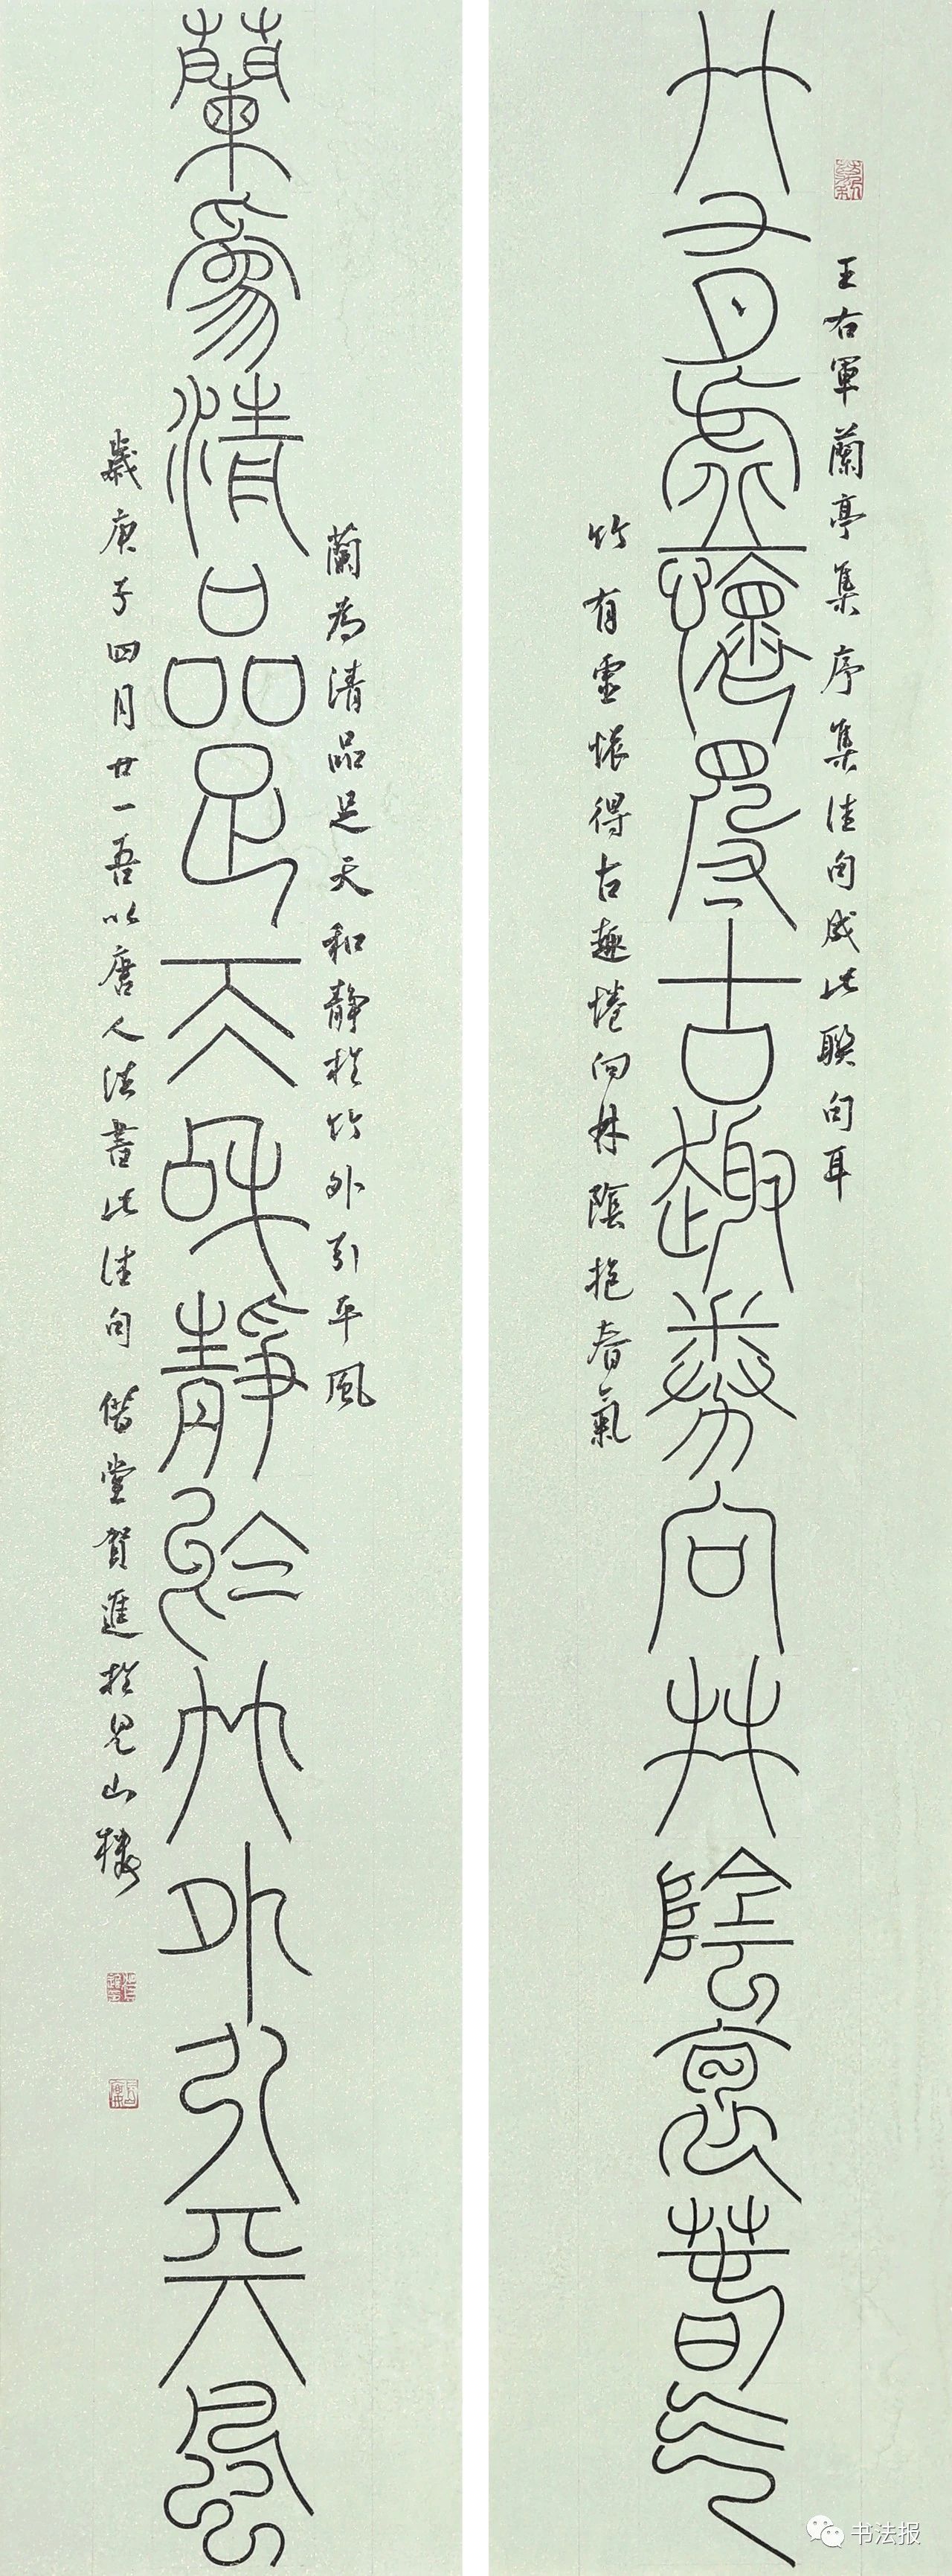 王右軍蘭亭集序集佳句成此聯句耳
竹有虛懷得古趣卷向林陰袌春气
竹有虛懷得古趣惓向林陰抱春氣
蘭為清品足天和靜於竹外引平風
蘭為清品足天和靜於竹外引平風
歲庚子四月廿一吾以唐人法書此佳句 偕堂賀進於見山樓
书法报